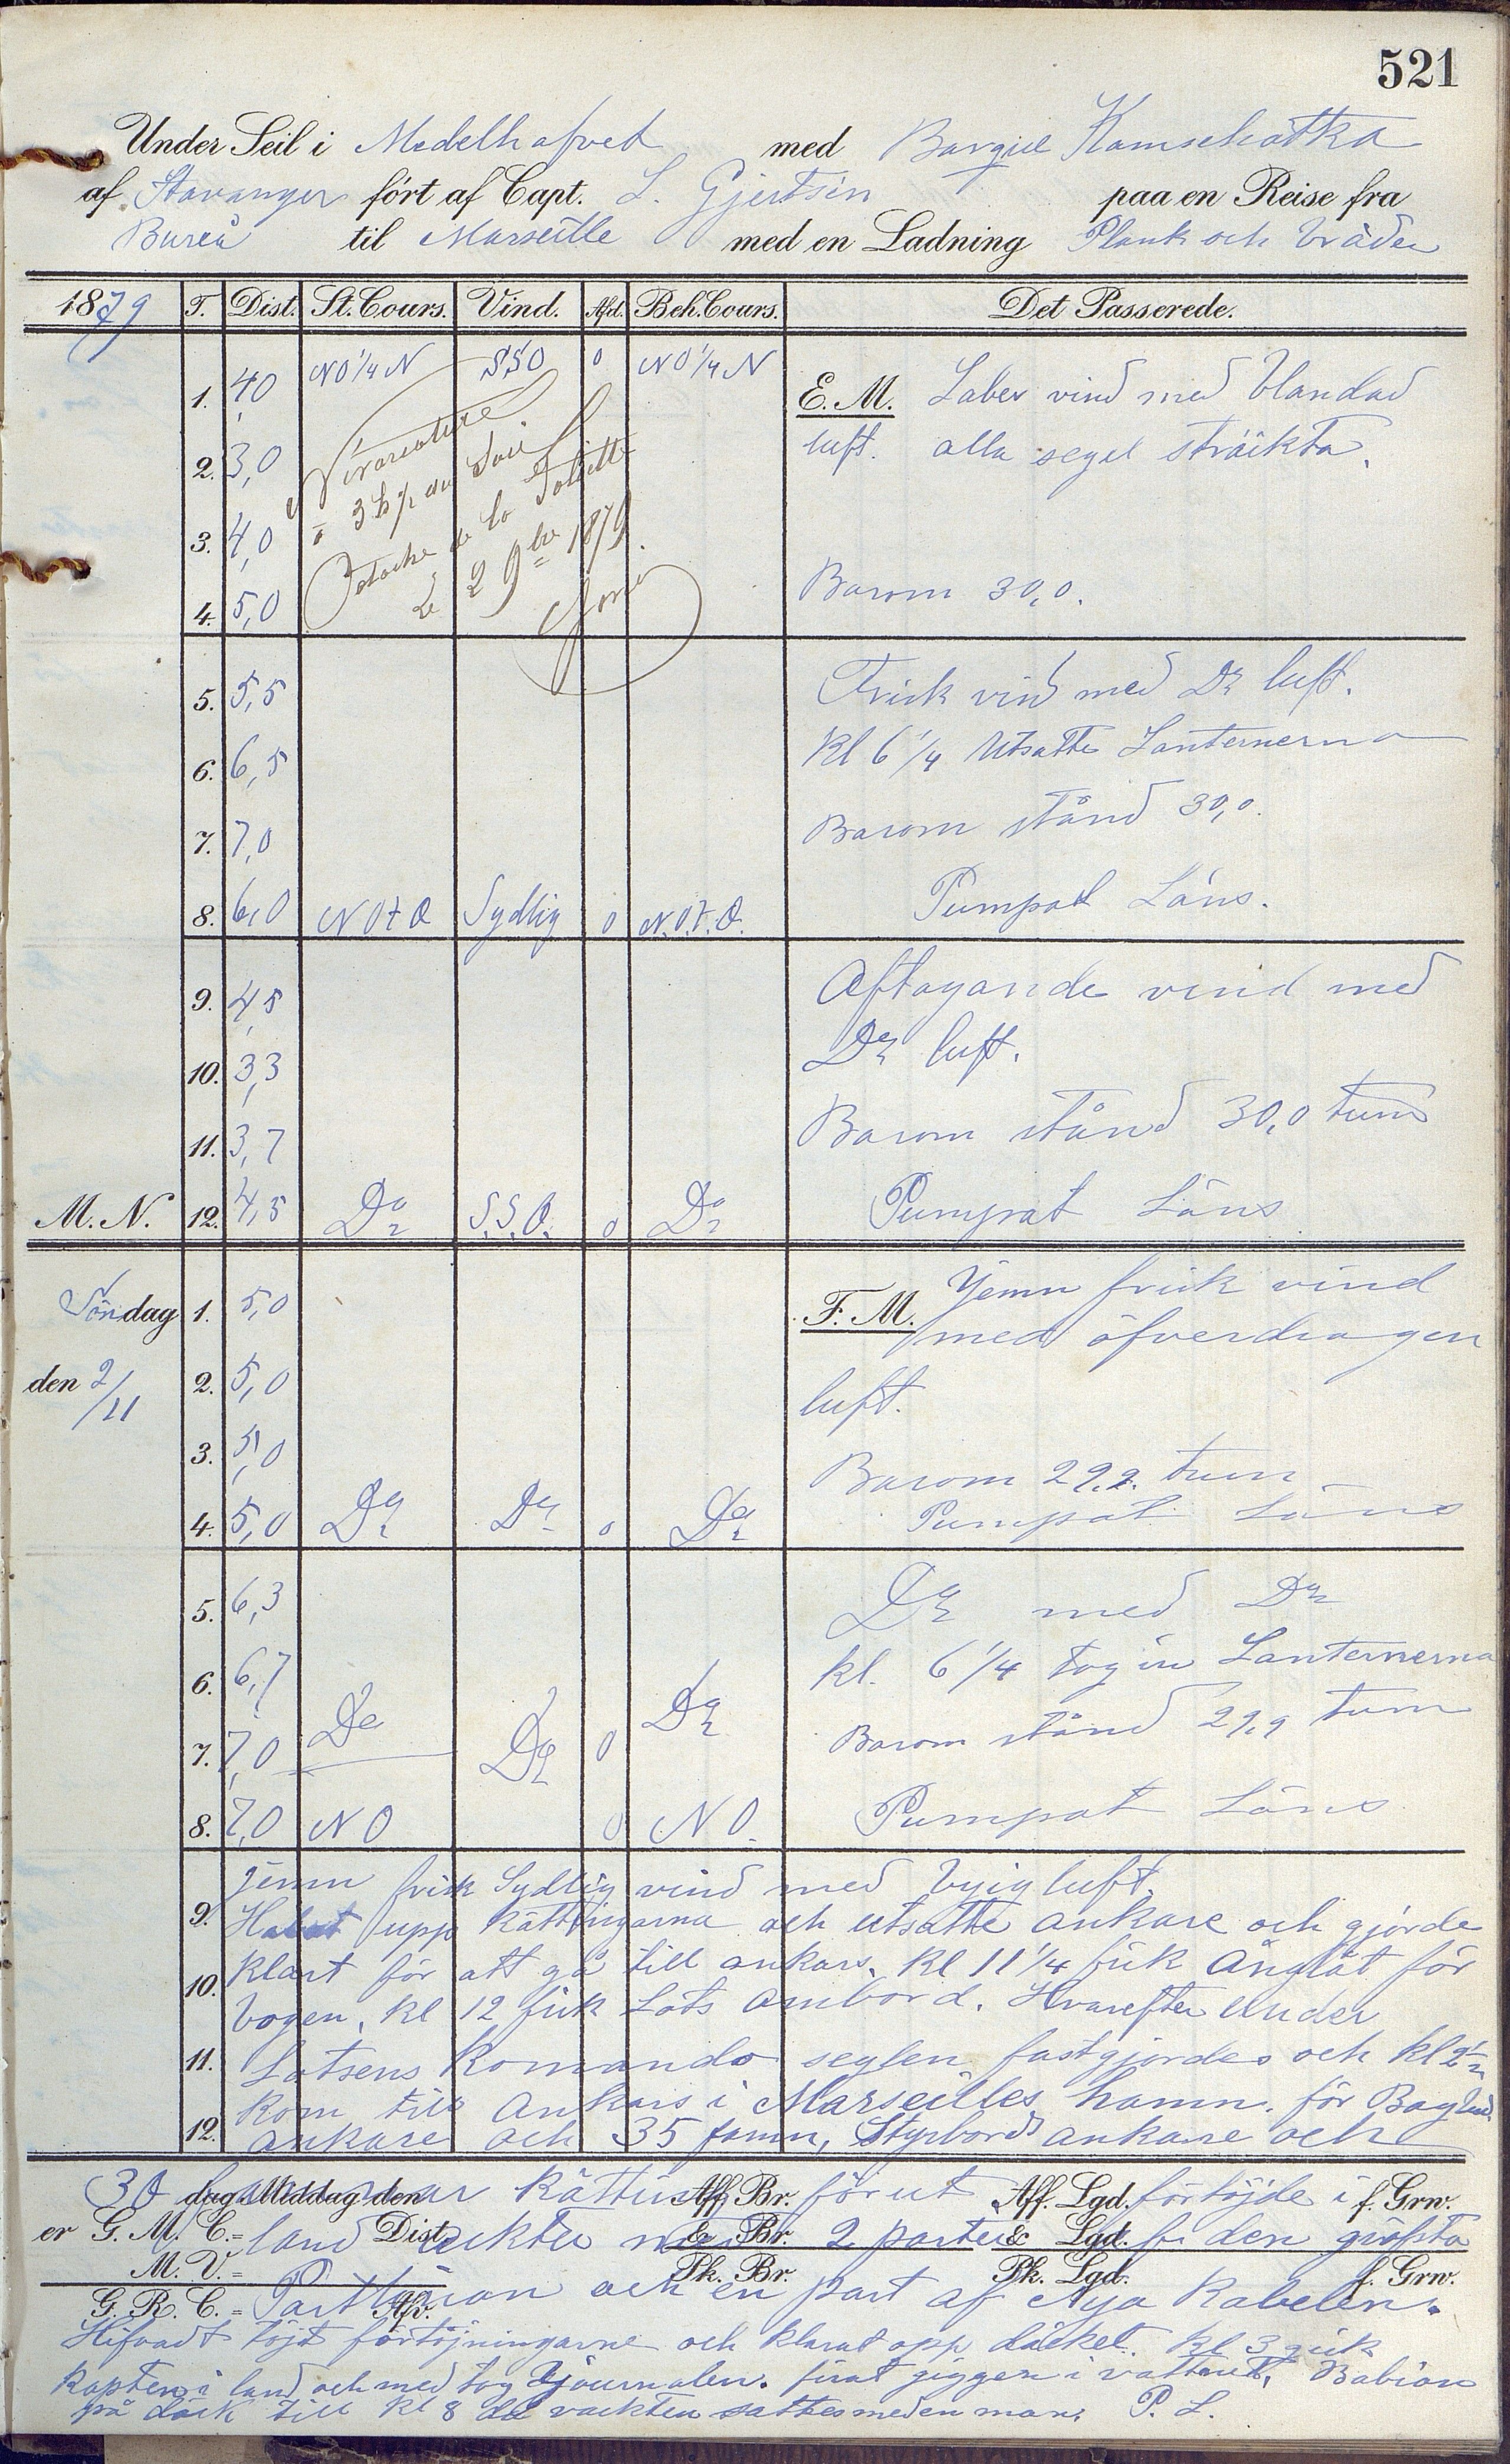 521
Under Seil i Medelhafvet med Barque Kamschatka
af Stavanger fört af Capt. L. Gjertsen paa en Reise fra
Bureå til Marseille med en Ladning Plank och bräder
1879 T. Dist. St. Cours. Vind. Afd. Beh. Cours. Det Passerede.
1. 4,0 NO 1/4 N SSO 0 NO 1/4 N E. M. Laber vind med blandad
2. 3,0 luft. alla segel sträckta.
3. 4,0
4. 5,0 Barom 30,0.
à 3 h 1/2 du Soir
Patache de la Joliette
Le 2 9bre 1879.
5. 5,5 Frisk vind med Do luft.
6. 6,5 Kl 6 1/4 Utsatte Lanternerna
7. 7,0 Barom stånd 30,0.
8. 6,0 NOtO Sydlig 0 N.O.t.O. Pumpat Läns.
9. 4,5 Aftagande vind med
10. 3,3 Do luft.
11. 3,7 Barom stånd 30,0 tum
M. N. 12. 4,5 Do S.S.O. 0 Do Pumpat Läns
Söndag 1. 5,0 F. M. Jemn frisk vind
med öfverdragen
den 2/11 2. 5,0 luft.
3. 5,0 Barom 29,9. tum
4. 5,0 Do Do 0 Do Pumpat Läns
5. 6,3 Do med Do
6. 6,7 kl. 6 1/4 tog in Lanternerna
7. 7,0 Do Do 0 Do Barom stånd 29,9 tum
8. 7,0 NO 0 NO. Pumpat Läns
jemn frisk Sydlig vind med byig luft.
9. Halat upp Kättingarna och utsatte ankare och gjorde
10. Klart för att gå till ankars. Kl 11 1/4 fick Ångbåt för
bogen, Kl 12 fick Lots ombord. Hvarefter Under
11. Lotsens Komando seglen fastgjordes och Kl 2 1/2
Kom till Ankars i Marseilles hamn. för Bagbord
12. ankare och 35 famn, Styrbords ankare och
30 famnar Kätting förut förtöjde i
dag Middag den Aff. Br. Aff. Lgd. f. Grw.
er G. M. C. = Dist. & Br. & Lgd.
land akter med 2 parter af den gröfsta
M. V. = Pk. Br. Pk. Lgd. f. Grw.
G. R. C. = Afv.
och en part af Nya Kabelen.
töjt förtöjningarne och klarat opp däcket. Kl 3 gick
Kapten i land och med tog Djournalen. firat giggen i vattnet,
på däck till Kl 8 då vackten sattes med en man. P. L.